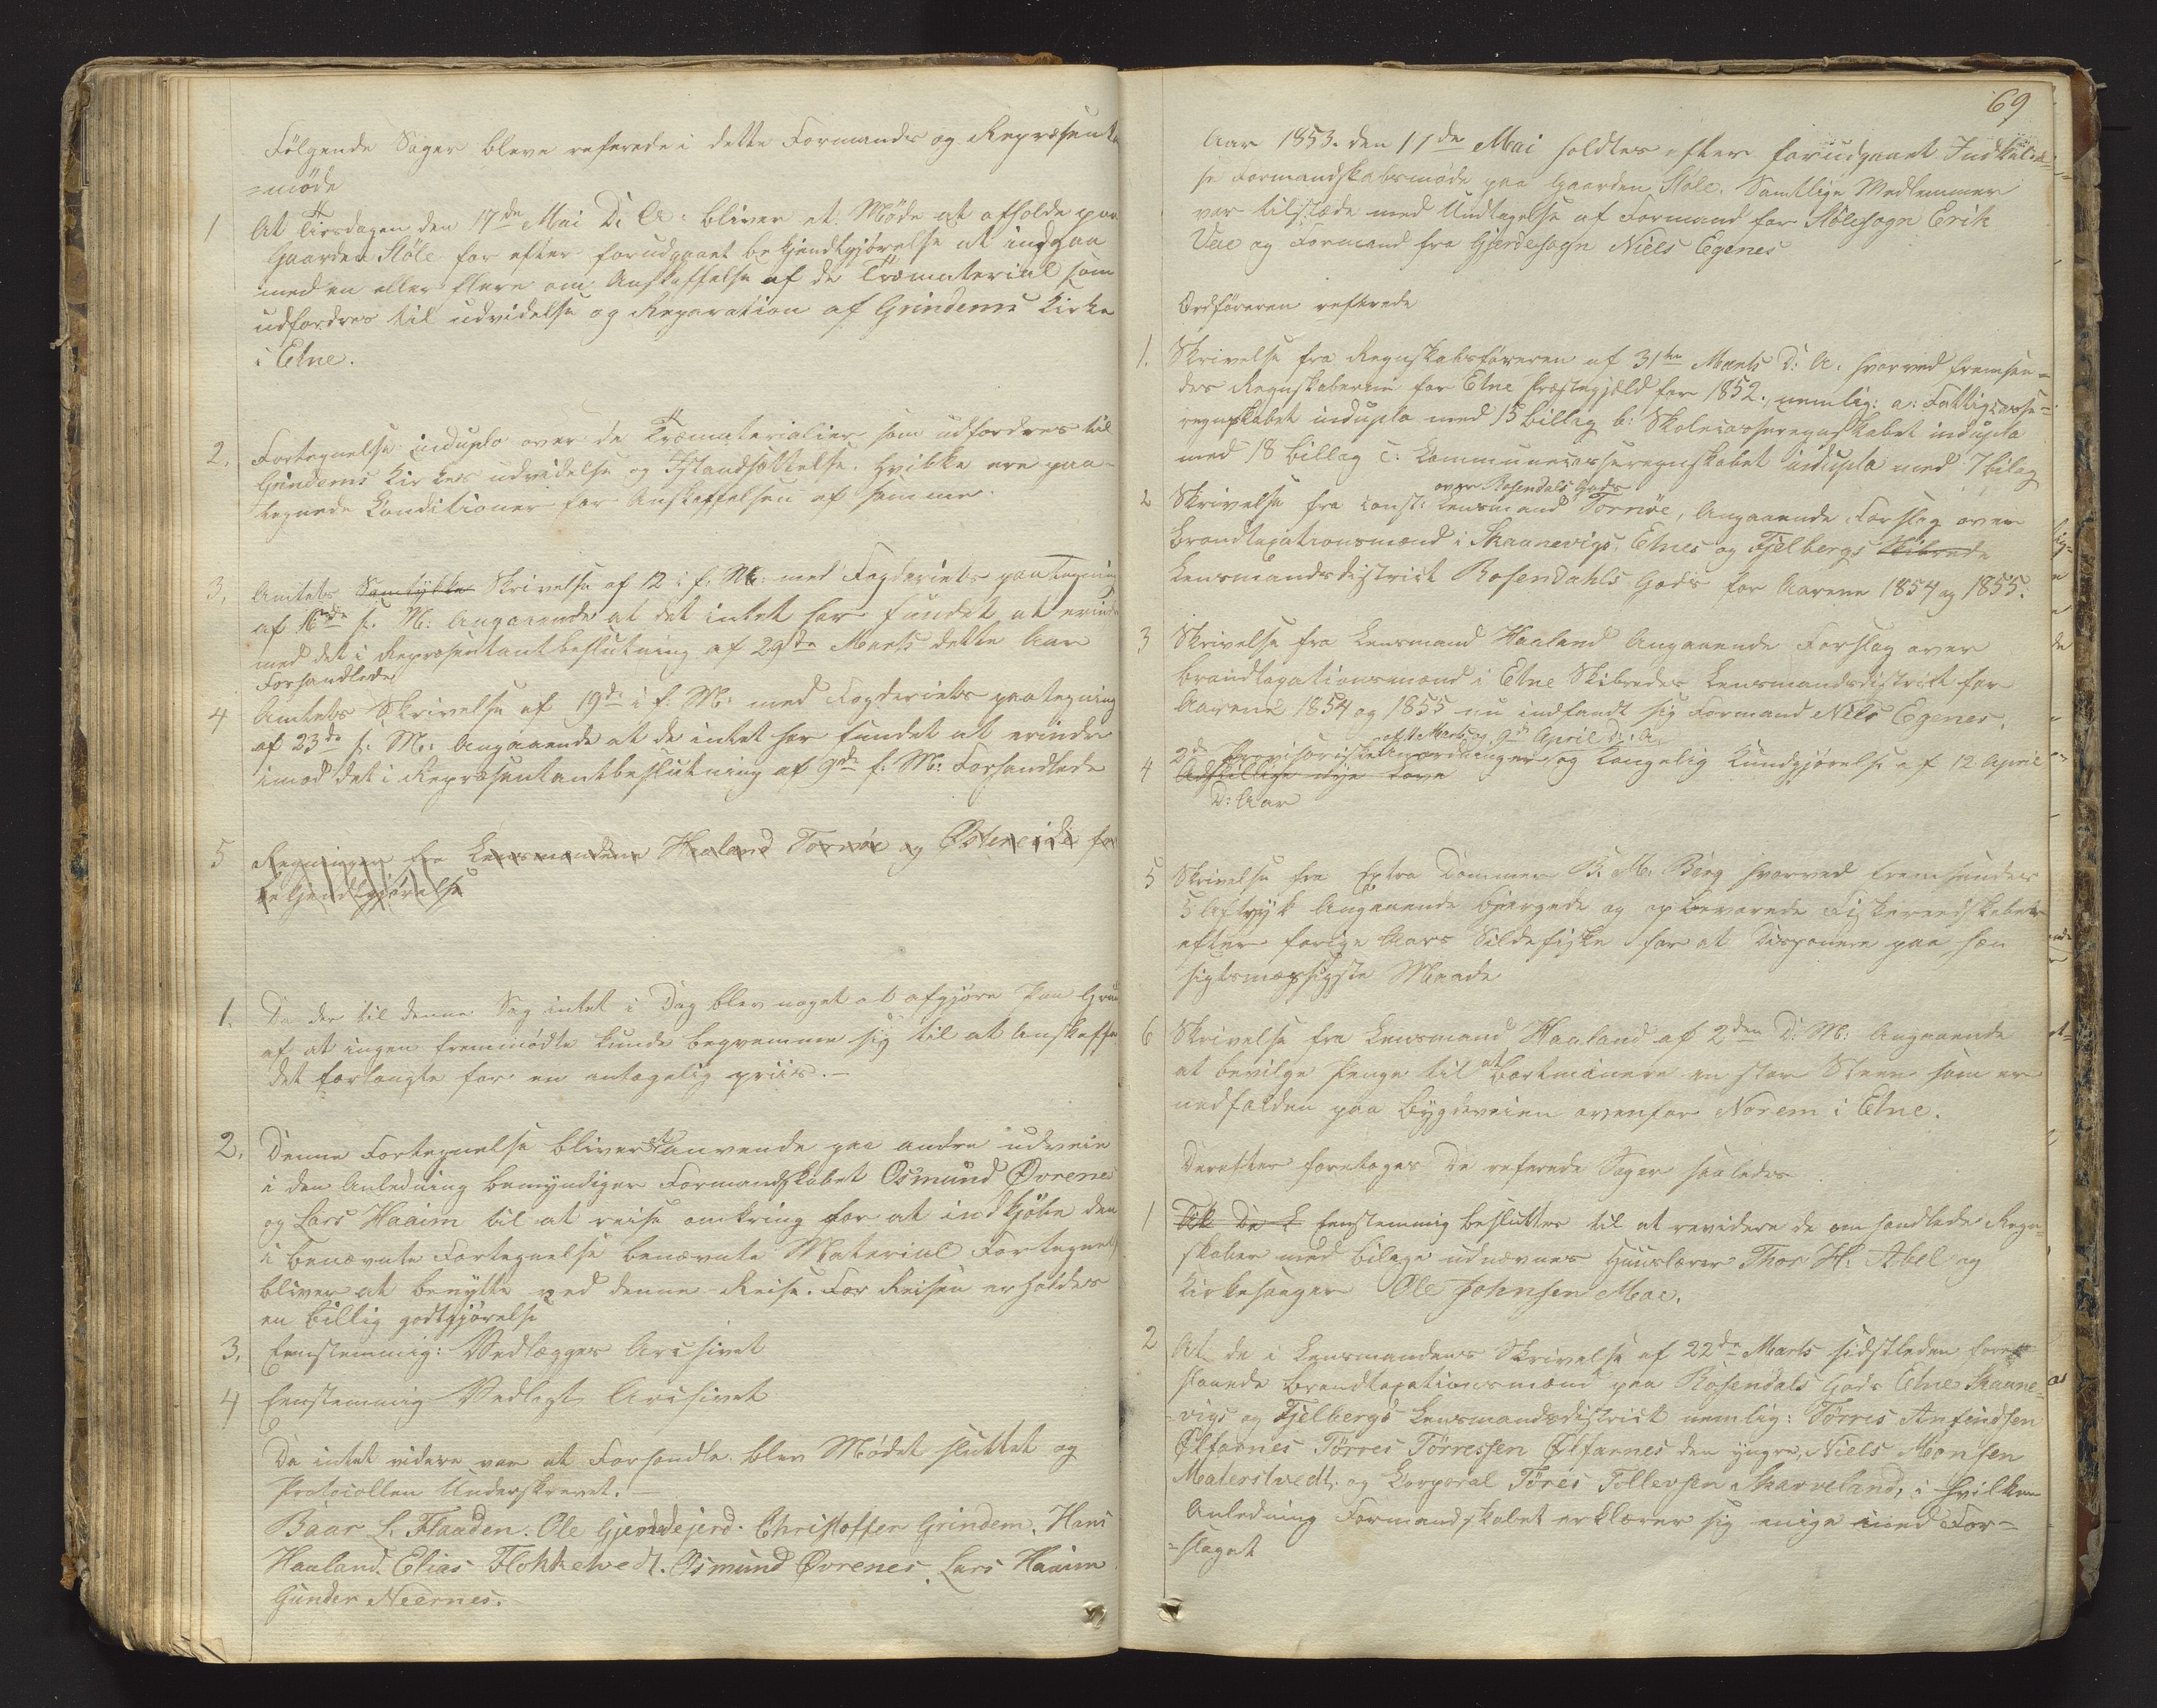 Følgende Sager bleve referede i dette Formands og Repræsent
=møde
1 At Tirsdagen den 17de Mai D: A: bliver et Møde at afholde paa
Gaarden Støle for efter forudgaaet bekjendtgjørelse at indgaa
med en eller flere om Anskaffelse af de Træmaterial som
udfordres til udvidelse og Reparation af Grindems Kirke
i Etne.
2, Fortegnelse induplo over de Træmaterialier som udfordres til
Grindems Kirkes udvidelse og Istandsættelse. Hvilke ere paa-
tegnede Conditioner for Anskaffelsen af samme.
3, Amtets Samtykke Skrivelse af 12 i f. M: med Fogderiets paategning
af 16de s. M: Angaaende at det intet har fundet at erindr
med det i Repræsentantbeslutning af 29de Marts dette Aar
Forhandlede
4 Amtets Skrivelse af 19de i f: M: med Fogderiets paategning
af 23de s: M: Angaaende at de intet har fundet at erindre
imod det i Repræsentantbeslutning af 9de f: M: Forhandlede
5 Regninger fra Lensmændene Haaland Tornøe og Østereide for
bekjendtgjørelse
1. Da der til denne Sag intet i Dag blev noget at afgjøre paa Grun
af at ingen fremmødte kunde beqvemme sig til at Anskaffe
det forlangte for en antagelig priis.–
2, Denne Fortegnelse bliver at anvende paa andre udveie
i den Anledning bemyndiger Formandskabet Osmund Øvrenes
og Lars Haaim til at reise omkring for at indkjøbe den
i benævnte Fortegnelse benævnte Material Fortegnels
bliver at benytte ved denne Reise. For Reisen erholdes
en billig godtgjørelse
3, Eenstemmig: Vedlægges Archivet
4 Eenstemmig Vedlagt Archivet
Da intet videre var at Forhandle blev Mødet sluttet og
Protocollen Underskrevet.–
Baar L. Flaaden. Ole Gjerdejerd. Christoffer Grindem. Hans
Haaland. Elias Flokketvedt. Osmund Øvrenes Lars Haaim
Gunder Neernes.
69
Aar 1853. den 11de Mai holdtes efter forudgaaet Indkal=
se Formandskabsmøde paa Gaarden Støle. Samtlige Medlemmer
var tilstæde med Undtagelse af Formand for Støle sogn Erik
Vae og Formand fra Gjerdesogn Niels Egenes
Ordføreren refterede
1. Skrivelse fra Regnskabsføreren af 31te Marts D: A. hvorved fremsen=
des Regnskaberne for Etne Præstegjæld for 1852., nemlig: a: Fattigcasse=
regnskabet induplo med 15 billag b: Skolecasseregnskabet induplo
med 18 billag c. Communecasseregnskabet induplo med 7 bilag
over Rosendals Gods
2 Skrivelse fra const: Lensmand Tornøe, Angaaende Forslag over
Brandtaxationsmænd i Skaanevigs, Etnes og Fjelbergs Skibrede
Lensmandsdistrict Rosendahls Gods for Aarene 1854 og 1855.
3 Skrivelse fra Lensmand Haaland Angaaende Forslag over
brandtaxationsmænd i Etne Skibredes Lensmandsdistrikt for
Aarene 1854 og 1855 nu indfandt sig Formand Nils Egenes.
af 1 Marts og 9de April D: A.
2de Provisoriske Anordninger og Kongelig Kundgjørelse af 12 April
4 Adskillige nye Love
D: Aar
5 Skrivelse fra Extra Dommer B. M. Berg hvorved tremsendes
5 Aftryk Angaaende bjergede og opbevarede Fiskeredskaber
efter forige Aars Sildefiske for at Disponere paa hen
sigtsmæssigste Maade
6 Skrivelse fra Lensmand Haaland af 2den D: M: Angaaende
at bevilge Penge til at bortminere en stor Steen som er
nedfalden paa bygdeveien ovenfor Norem i Etne.
Derefter foretoges de referede Sager saaledes
1 Eenstemmig besluttes til at revidere de omhandlede Regn
skaber med bilage udnævnes Huuslærer Thor H. Abel og
Kirkesanger Ole Johnsen Moe.
2 At de i Lensmandens Skrivelse af 22de Marts sidstleden fore
slaaede brandtaxationsmænd paa Rosendals Gods Etne Skaane=
=vigs og Fjelbergs Lensmandsdistrict nemlig: Tørres Anfindsen
Ølfarnes Tørres Tørressen Ølfarnes den yngre, Niels Monsen
Materstvedt. og Corporal Tøres Tollevsen Skarveland, i hvilken
Anledning Formandskabet erklærer sig enige med For=
=slaget